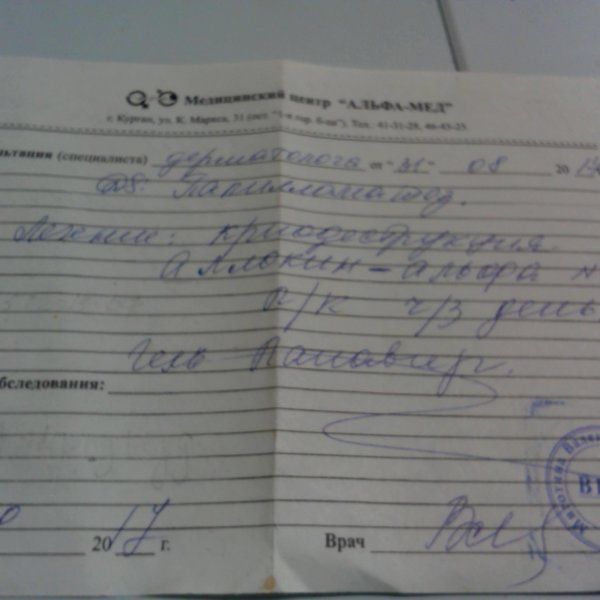 Медицинский центр "АЛЬФА-МЕД"
г. Курган, ул. К. Маркса, 31 (ост. "1-я гор. б-ца"). Тел.: 41-31-28, 46-43-25
ьтация (специалиста) дерматолога от "31" 08 20
DS: Папилломатоз.
Лечение: криодеструкция
Аллокин-альфа №
п/к ч/з день
Гель Панавир.
обследования:
20 17 г.
Врач